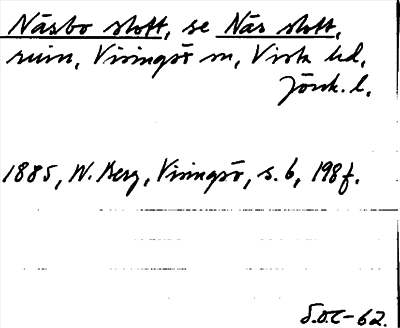 Näsbo slott, se Näs slott,
ruin, Visingsö sn, Vista hd,
Jönk. l.
1885, W. Berg, Visingsö, s. 6, 198f.
S.O.C-62.